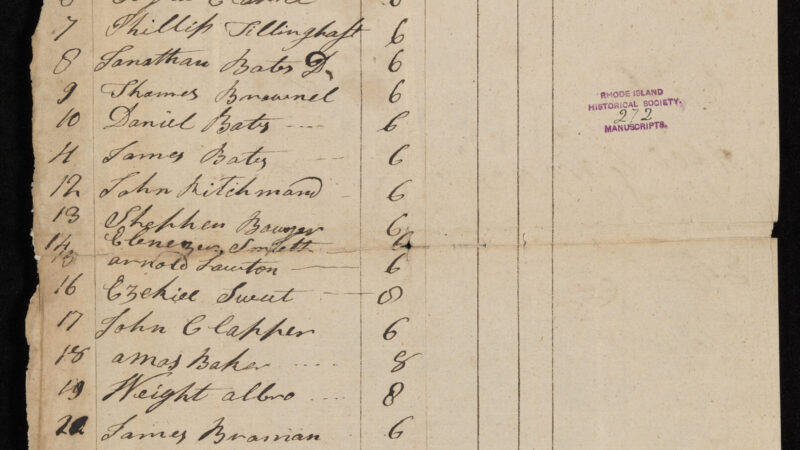 7 Phillip Tillinghast 6
8 Jonathan Bates D. 6
9 Thomes Brownel 6
10 Daniel Bates 6
11 James Bates 6
12 John Kitchmand 6
13 Stephen Bowyer 6
14 Ebenezer 6
15 arnold Lawton 6
16 Ezekiel Sweet 8
17 John Clapper 6
18 amos Baker 8
19 Weight albro 8
20 James Braman 6
RHODE ISLAND
HISTORICAL SOCIETY.
272
MANUSCRIPTS.